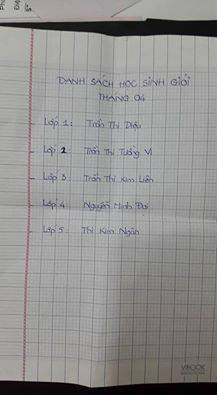 DANH SÁCH HỌC SINH GIỎI
THÁNG 04
Lớp 1: Trần Thị Diệu
Lớp 2: Trần Thị Tường Vi
Lớp 3: Trần Thị Kim Liên
Lớp 4: Nguyễn Minh Đại
Lớp 5: Thị Kim Ngân